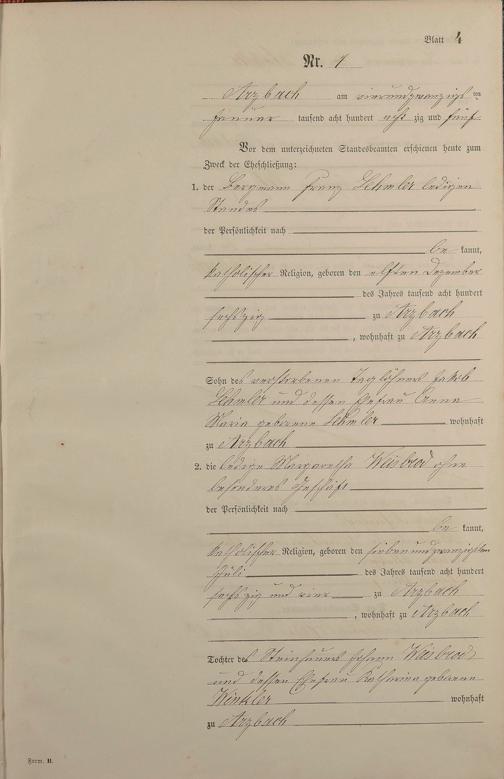 Blatt 4
Nr. 1
Arzbach am vierundzwanzigsten
Januar tausend acht hundert achtzig und fünf
Vor dem unterzeichneten Standesbeamten erschienen heute zum
Zweck der Eheschließung:
1. der Bergmann Franz ledigen
Standes
der Persönlichkeit nach
be kannt,
katholischer Religion, geboren den elften Dezember
des Jahres tausend acht hundert
sechszig zu Arzbach
, wohnhaft zu Arzbach
Sohn des verstorbenen Taglöhners Jakob
und dessen Ehefrau Anna
Maria geborene wohnhaft
zu Arzbach
2. die ledige Margaretha Weisbrod ohne
besonderes Geschäft
der Persönlichkeit nach
be kannt,
katholischer Religion, geboren den siebenundzwanzigsten
Juli des Jahres tausend acht hundert
sechszig und vier zu Arzbach
, wohnhaft zu Arzbach
Tochter des Steinhauers Johann Weisbrod
und dessen Ehefrau Katharina geborene
Winkler wohnhaft
zu Arzbach
Form. B.